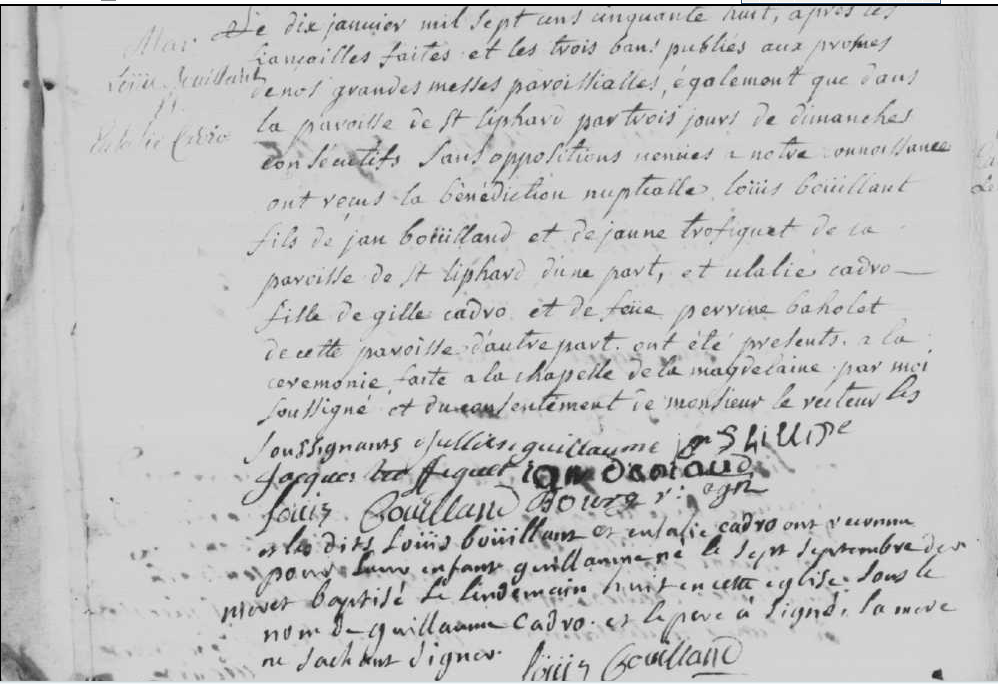 Mar
Loüis Boüillant
et
Eulalie Cadro
Le dix janvier mil sept cens cinquante huit, après les
fiançailles faites et les trois bans publiés aux prones
de nos grandes messes paroissialles, également que dans
la paroisse de st liphard par trois jours de dimanches
consécutifs sans oppositions venues a notre connoissance
ont reçus la bénédiction nuptialle loüis boüillant
fils de jan boüilland et de janne trofiguet de la
paroisse de st liphard d'une part, et ulalie cadro
fille de gille cadro et de feüe perrine baholet
de cette paroisse d'autre part. ont été presents a la
ceremonie faite a la chapelle de la magdelaine par moi
soussigné et du consentement de monsieur le recteur les
soussignants guillaume
Jacques trofiguet
loüis Boüilland
et les dits Loüis boüillant et cadro ont reconnu
pour leur enfant guillaume né le sept septembre der
nier et baptisé le lendemain huit en cette eglise sous le
nom de guillaume Cadro. et le pere a signé, la mere
ne sachant signer.
loüis Boüilland